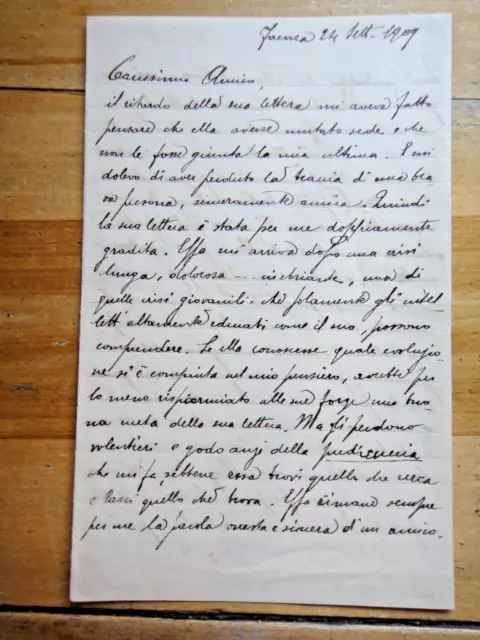 Faenza 24 Sett. 1909
Carissimo Amico,
il ritardo della sua lettera mi aveva fatto
pensare che ella avesse mutato sede e che
non le fosse giunta la mia ultima. E mi
dolevo di aver perduto la traccia d'una bra-
va persona, sinceramente amica. Quindi
la sua lettera è stata per me doppiamente
gradita. Essa mi arriva dopo una crisi
lunga, dolorosa - inebriante, una di
quelle crisi giovanili che solamente gl'intel-
letti altamente educati come il suo, possono
comprendere. Se ella conoscesse quale evoluzio-
ne si è compiuta nel mio pensiero, avrebbe per
lo meno risparmiato alle sue forze una buo-
na metà della sua lettera. Ma Le perdono
volentieri e godo anzi della predicuccia
che mi fa, sebbene essa trovi quello che cerca
e lasci quello che trova. Essa rimane sempre
per me la parola onesta e sincera d'un amico.